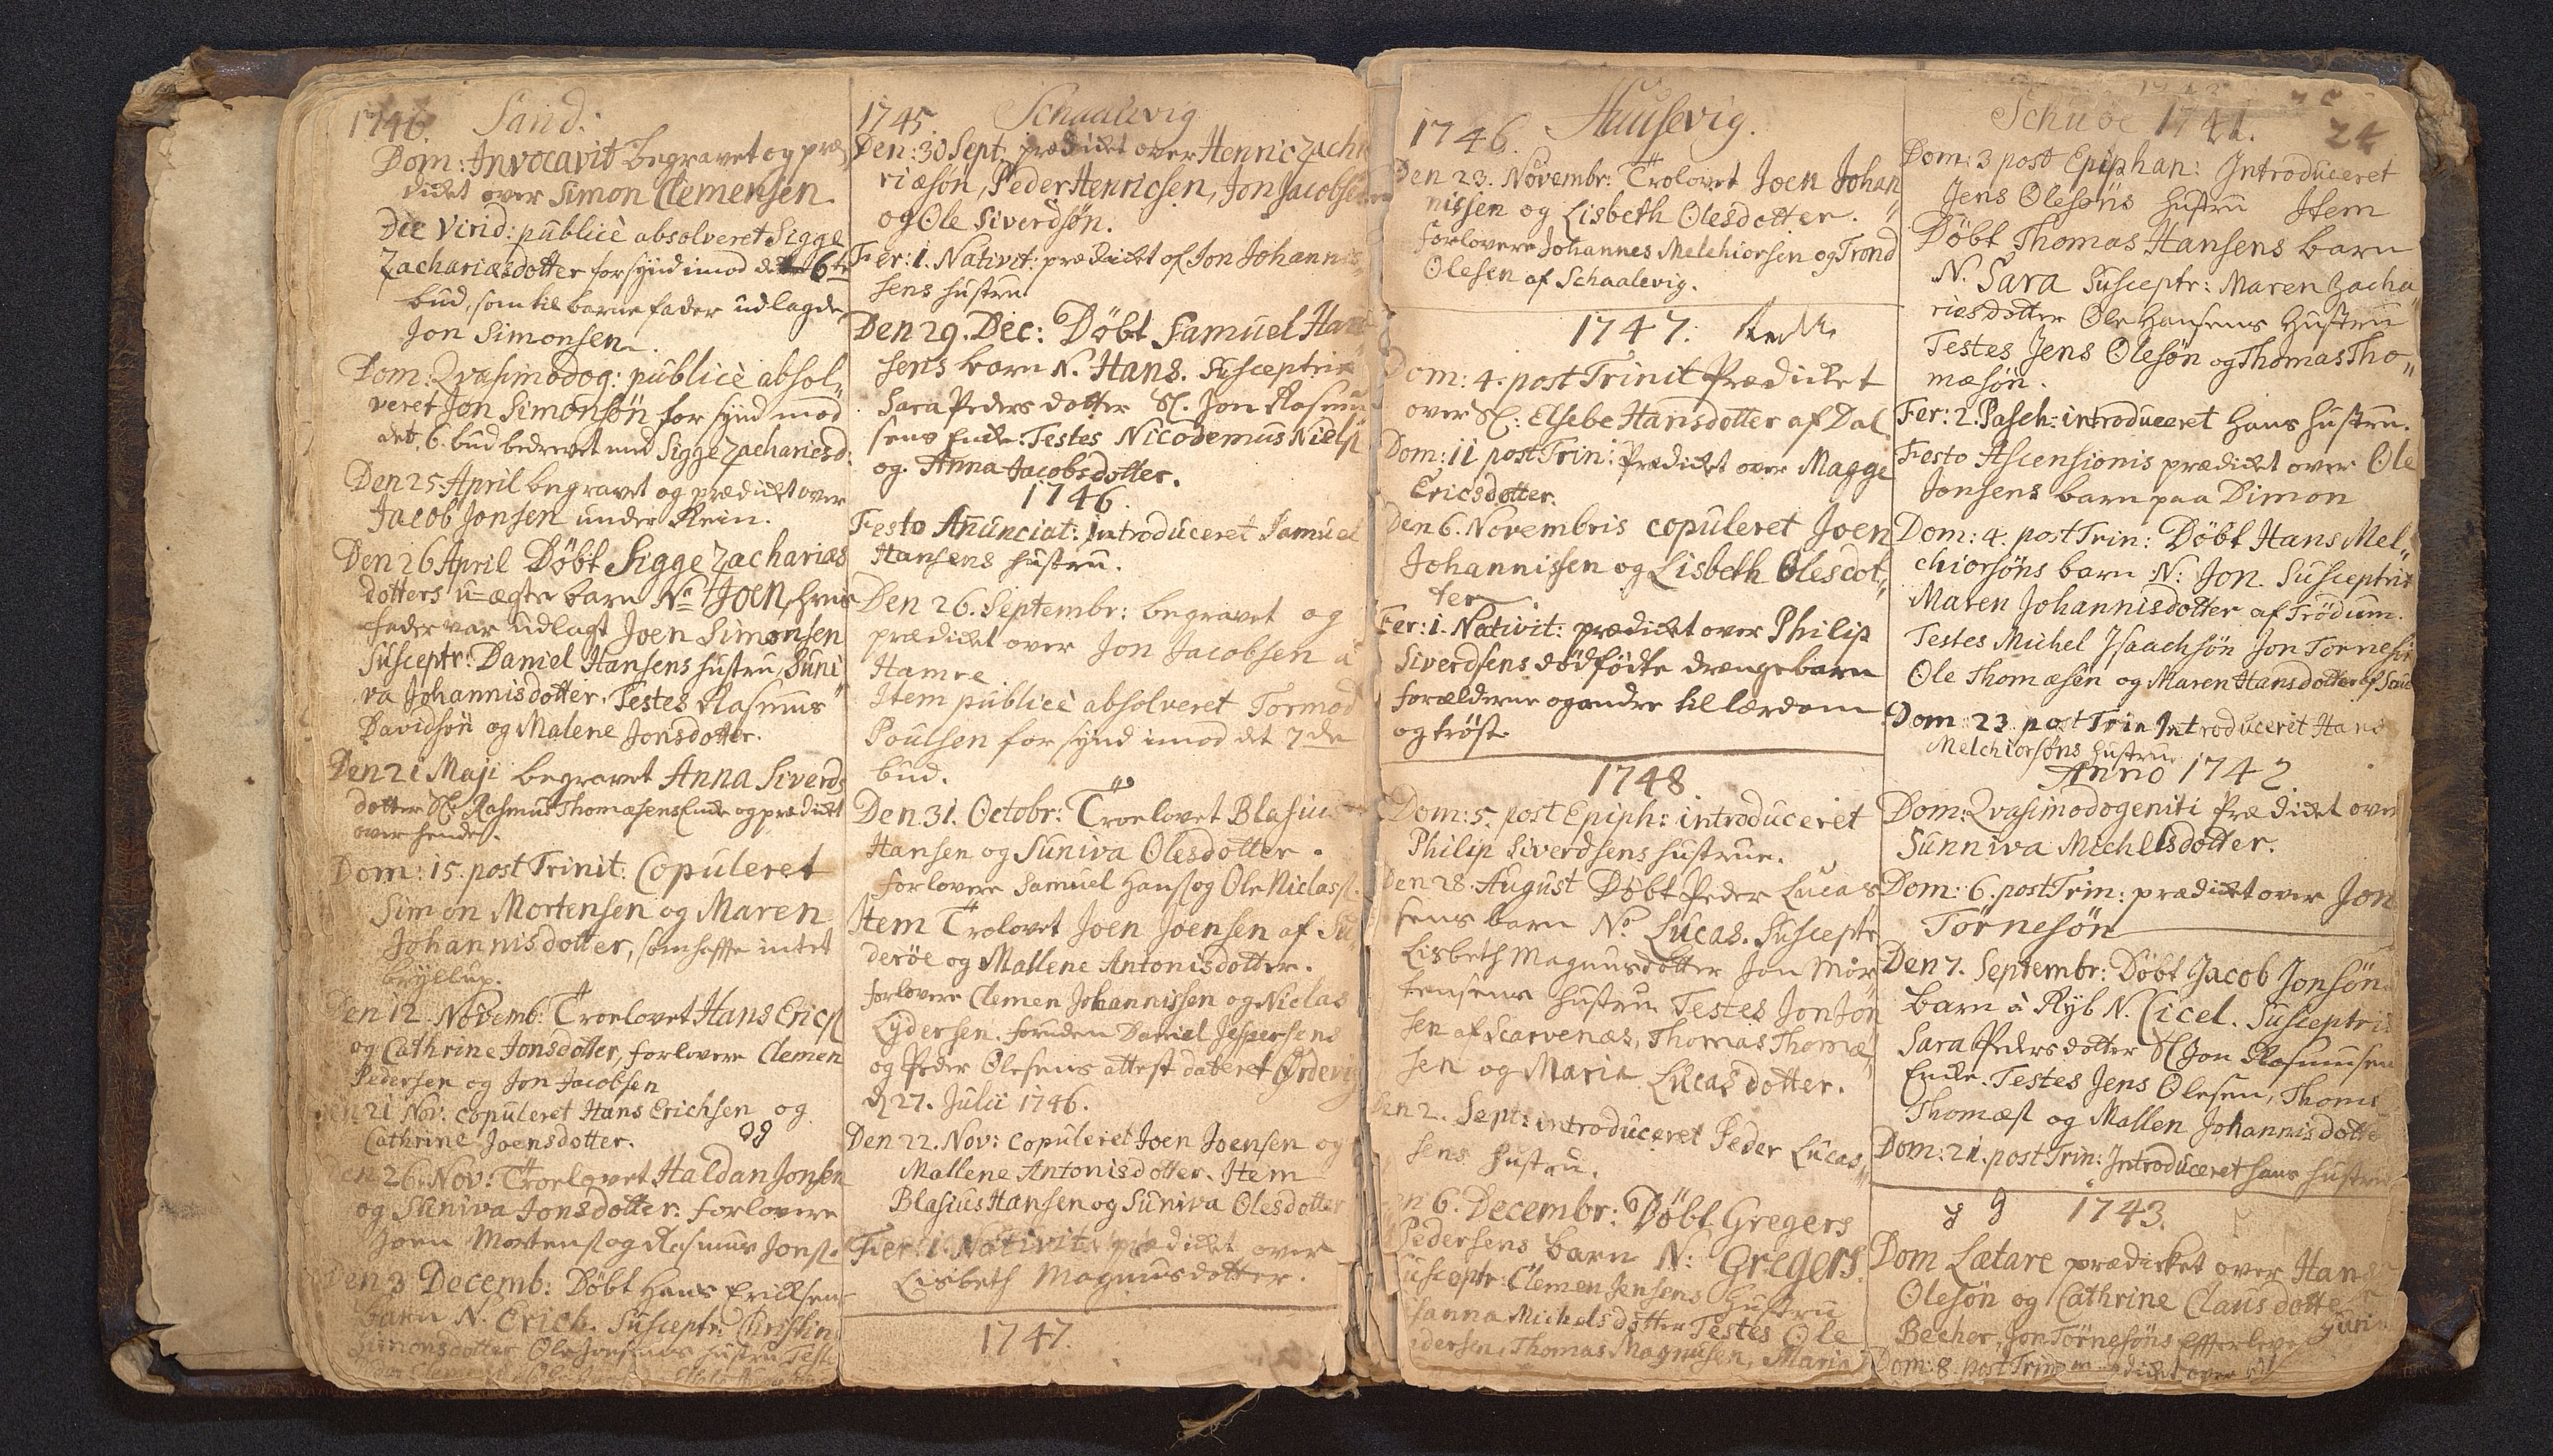 1746. Sand.
Dom: Invocavit begravet og præ„
dicket over Simon Clemensen.
Die Virid: publicè absolveret Sigge
Zachariæsdotter for synd imod det 6te
bud, som til barnefader udlagde
Jon Simonsen.
Dom: Qvasimodog: publicè absol„
veret Jon Simonsøn for synd mod
det 6. bud bedrevet med Sigge Zachariesd.
Den 25 April begravet og prædicket over
Jacob Jonsen under Rein.
Den 26 April Døbt Sigge Zacharias
dotters u-ægte barn No Joen, hvis
fader var udlagt Joen Simonsen
Susceptr: Daniel Hansens hustru, Suni„
va Johannisdotter. Testes Rasmus
Davidsøn og Malene Jonsdotter.
Den 21 Maji begravet Anna Siverds
dotter Sl. Rasmus Thomæsens Encke og prædicket
over hende.
Dom: 15. post Trinit. Copuleret
Simon Mortensen og Maren
Johannisdotter, som haffte intet
bryllup.
Den 12. Novemb: Troelovet Hans Erics
og Cathrine Jonsdotter, forlovere Clemen
Pedersen og Jon Jacobsen
Den 21 Nov: copuleret Hans Erichsen og
Cathrine Joensdotter.
Den 26. Nov: Troelovet Haldan Jonsen
og Suniva Jonsdotter: forlovere
Joen Mortens. og Rasmus Jons.
Den 3 Decemb: Døbt Hans Ericksens
barn N. Erich. Susceptr: Christin
Simonsdotter Ole Jensens hustru Test
1745 Schaalevig
Den: 30 Sept prædicket over Henric Zacha
riæsøn, Peder Henricsen, Jon Jacobsen
og Ole Siverdsøn.
Fer: 1. Nativit: prædicket of Jon Johannis„
sens hustru
Den 29. Dec: Døbt Samuel Han
sens barn N. Hans. Susceptrix
Sara Peders dotter Sl. Jon Rasmu
sens Encke: Testes Nicodemus Niels
og Anna Jacobsdotter.
1746.
Festo Anunciat: introduceret Samuel
Hansens hustru.
Den 26. Septembr: begravet og
prædicket over Jon Jacobsen à
Hamre
Item publicè absolveret Tormod
Poulsen for synd imod det 7de
bud.
Den 31. Octobr: Troelovet Blasius
Hansen og Suniva Olesdotter.
forlovere Samuel Hans og Ole Niclass.
Item Trolovet Joen Joensen af Su„
derøe og Mallene Antonisdotter.
forlovere Clemen Johannissen og Niclas
Lydersen. foruden Daniel Jespersens
og Peder Olesens attest dateret Ørdevig
d 27. Julii 1746.
Den 22. Nov: copuleret Joen Joensen og
Mallene Antonisdotter. Item
Blasius Hansen og Suniva Olesdotter
Fer: 1. Nativit: prædicket over
Lisbeth Magnusdotter.
1747.
1746. Huusevig.
Den 23. Novembr: Trolovet Joen Johan„
nissen og Lisbeth Olesdotter.
forlovere Johannes Melchiorsen og Trond
Olesen af Schaalevig.
1747.
Dom: 4. post Trinit Prædicket
over Sl: Elsebe Hansdotter af Dal
Dom: 11 post Trin: Prædicket over Magge
Ericsdotter.
Den 6. Novembris copuleret Joen
Johannissen og Lisbeth Olesdot„
ter
Fer: 1. Nativit: prædicket over Philip
Siverdsens dødfødte drængebarn
forældrene og andre til lærdom
og trøst.
1748
Dom: 5. post Epiph: introduceret
Philip Siverdsens hustrue.
Den 28. August Døbt Peder Lucas
sens barn No Lucas. Susceptr
Lisbeth Magnusdotter Jon Mor
tensens hustru Testes Jon Jon
sen af Scarvenæs, Thomas Thomæ„
sen og Maria Lucasdotter.
Den 2. Sept: introduceret Peder Lucas„
sens hustru.
Den 6. Decembr: Døbt Gregers
Pedersens barn N: Gregers.
Susceptr: Clemen Jensens hustru
Sanna Michelsdotter Testes Ole
dersen, Thomas Magnusen, Maria
Schuøe 1741. 24
Dom: 3 post Epiphan: Introduceret
Jens Olesøns hustru Item
Døbt Thomas Hansens barn
N. Sara Susceptr: Maren Zacha„
riasdotter Ole Hansens Hustru
Testes Jens Olesøn og Thomas Tho„
mæsøn.
Fer: 2. Pasch: introduceret hans hustru.
Festo Ascensionis prædicket over Ole
Jonsens barn paa Dimon
Dom: 4. post Trin: Døbt Hans Mel„
chiorsøns barn N: Jon. Susceptrix
Maren Johannisdotter af Trödum.
Testes Michel Isaachsøn Jon Tørnesøn
Ole Thomæsen og Maren Hansdotter af Sand
Dom: 23. post Trin Introduceret Hans
Melchiorsøns hustru
Anno 1742
Dom: Qvasimodogeniti Prædicket over
Sunniva Michelsdotter.
Dom: 6. post Trin: prædicket over Jon
Tørnesøn
Den 7. Septembr: Døbt Jacob Jonsøns
barn à Ryb N. Cicel. Susceptrix
Sara Pedersdotter Sl Jon Rasmusen
Encke. Testes Jens Olesen, Thoms
Thomæs. og Mallen Johannisdotter
Dom: 21. post Trin: Introduceret hans hustru
1743.
Dom Lætare prædicket over Hans
Olesøn og Cathrine Clausdotter
Becher, Jon Tørnesøns Efterlever
Dom: 8. post Trin prædicket over